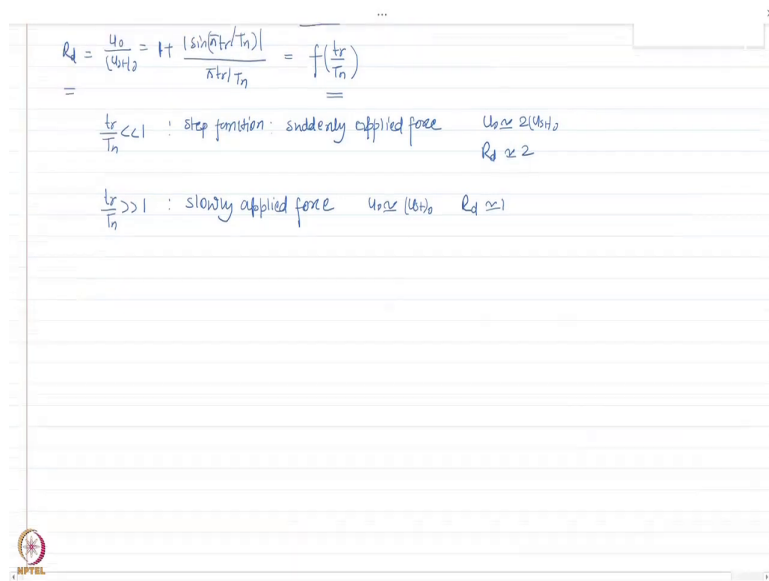 Rd = u0/(ust)0 = 1+ |sin(πtr/Tn)|/πtr/Tn = f(tr/Tn)
tr/Tn <<1 : step function: suddenly applied force u0 ≃ 2(ust)0
Rd ≃ 2
tr/Tn >>1 : slowly applied force u0 ≃ (ust)0 Rd ≃ 1
NPTEL